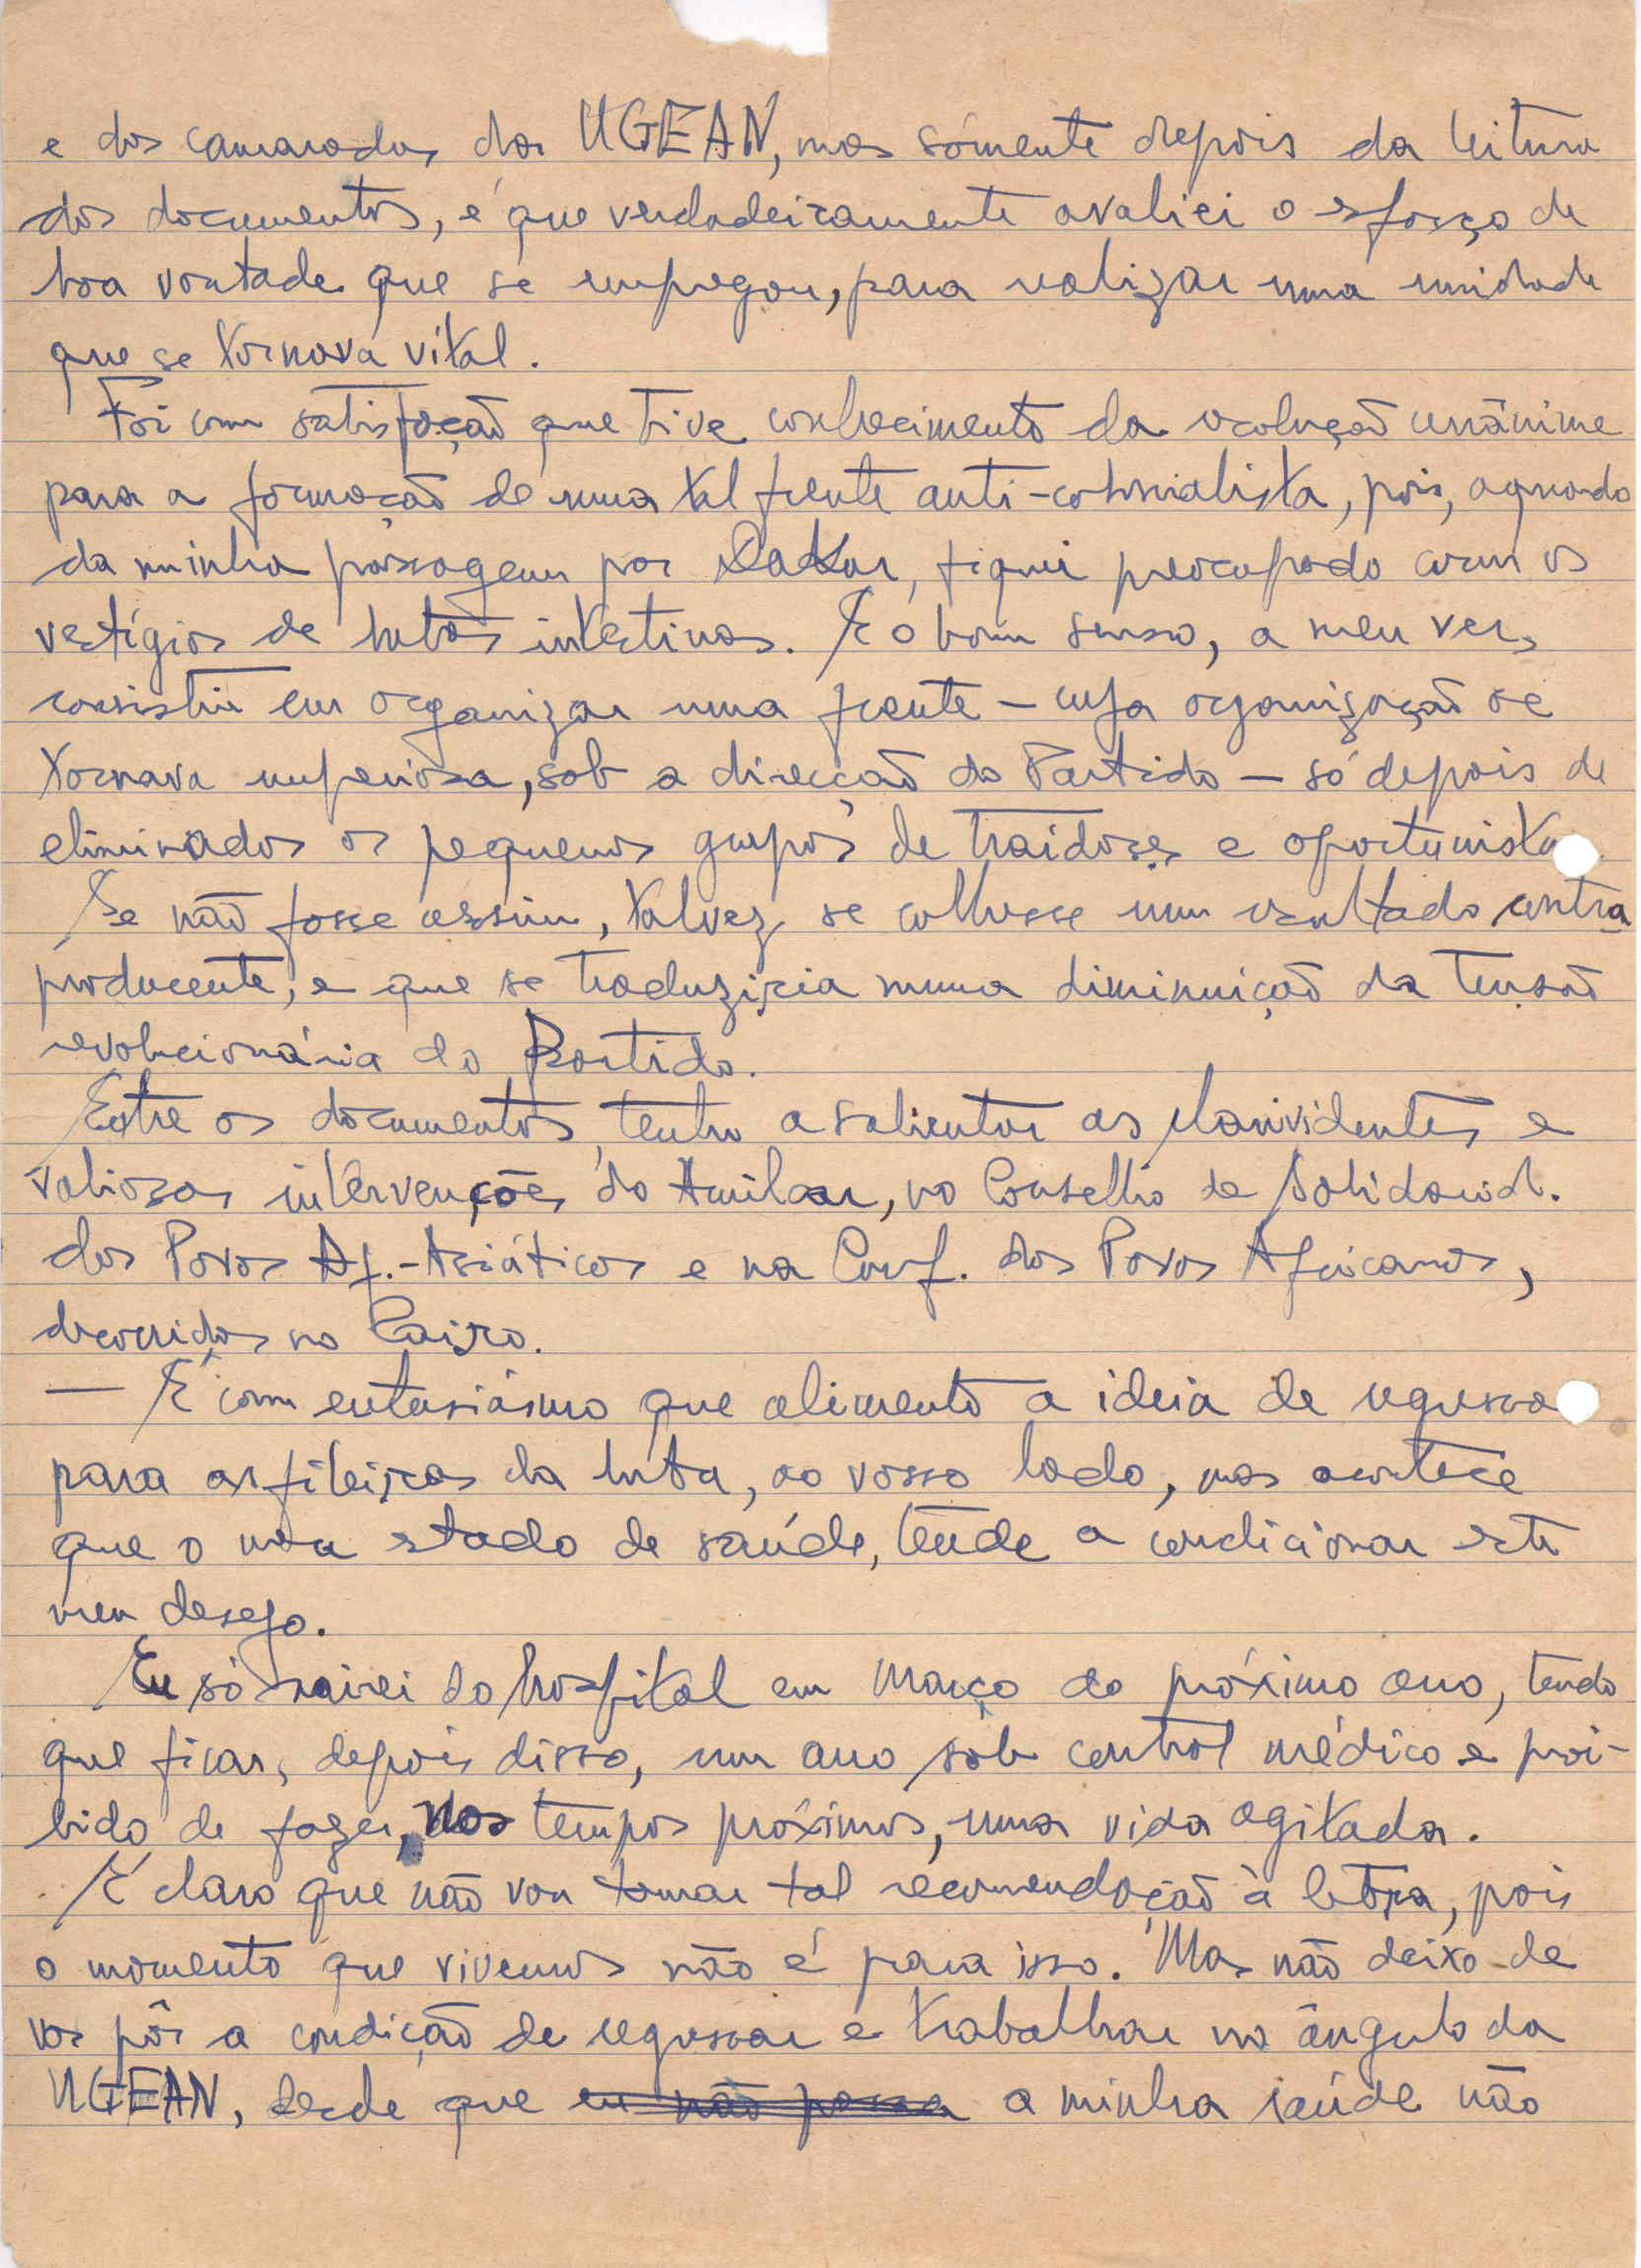 e dos camaradas da UGEAN, mas sómente depois da leitura
dos documentos, é que verdadeiramente avaliei o esforço de
boa vontade que se empregou, para realizar uma unidade
que se tornava vital.
Foi com satisfação que tive conhecimento da resolução unânime
para a formação de uma tal frente anti-colonialista, pois, aquando
da minha passagem por Dakar, fiquei preocupado com os
vestígios de lutas intestinas. E o bom senso, a meu ver,
consistiu em organizar uma frente — cuja organização se
tornava imperiosa, sob a direcção do Partido — só depois de
eliminados os pequenos grupos de traidores e oportunistas.
Se não fosse assim, talvez se colhesse um resultado contra
producente, e que se traduziria numa diminuição da tensão
revolucionária do Partido.
Entre os documentos, tenho a salientar as clarividentes e
valiosas intervenções do Amilcar, no Conselho de Solidaried.
dos Povos Af.-Asiáticos e na Conf. dos Povos Africanos,
decorridas no Cairo.
— É com entusiásmo que alimento a ideia de regresso
para as fileiras da luta, ao vosso lado, mas acontece
que o meu estado de saúde, tende a condicionar este
meu desejo.
Eu só sairei do hospital em Março do próximo ano, tendo
que ficar, depois disso, um ano sob control médico e proi-
bido de fazer, nos tempos próximos, uma vida agitada.
É claro que não vou tomar tal recomendação à letra, pois
o momento que vivemos não é para isso. Mas não deixo de
vos pôr a condição de regressar e trabalhar no ângulo da
UGEAN, desde que eu não possa a minha saúde não